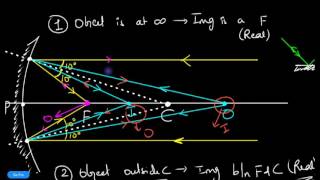 ① Object is at ∞ → Img is a F
(Real)
10°
10°
P
O
F
I
C
O
10°
10°
O
I
② Object outside C → Img b/n F & C (Real)